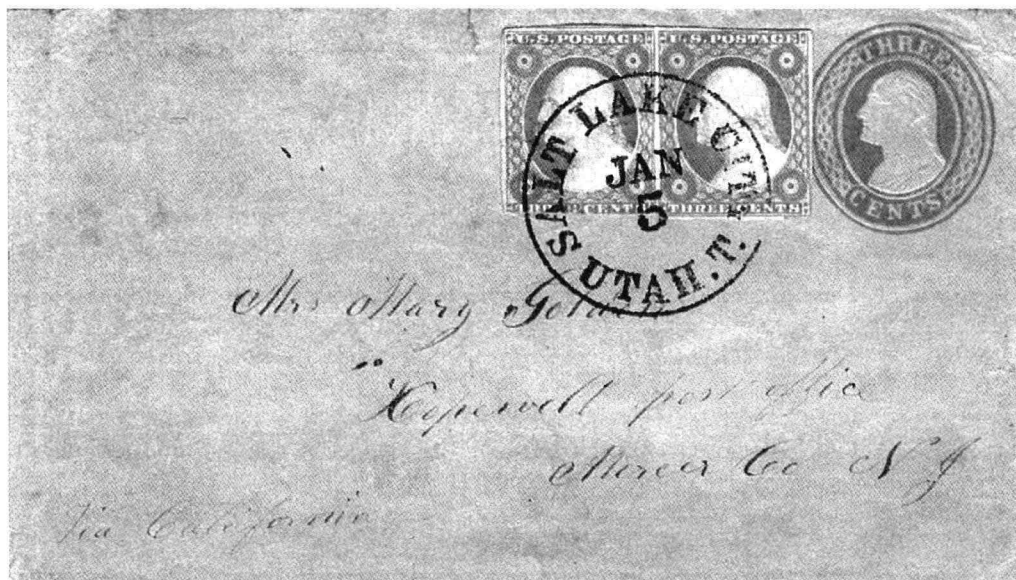 U.S. POSTAGE U.S. POSTAGE
THREE CENTS THREE CENTS
THREE
CENTS
SALT LAKE CITY
JAN
5
UTAH.T.
Mrs Mary
Hopewell post office
Mercer Co N J
Via California